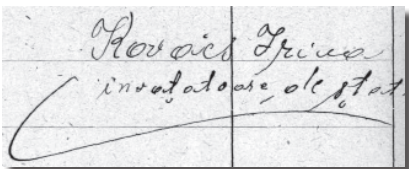 Kovács Irina
invățatoare de stat.